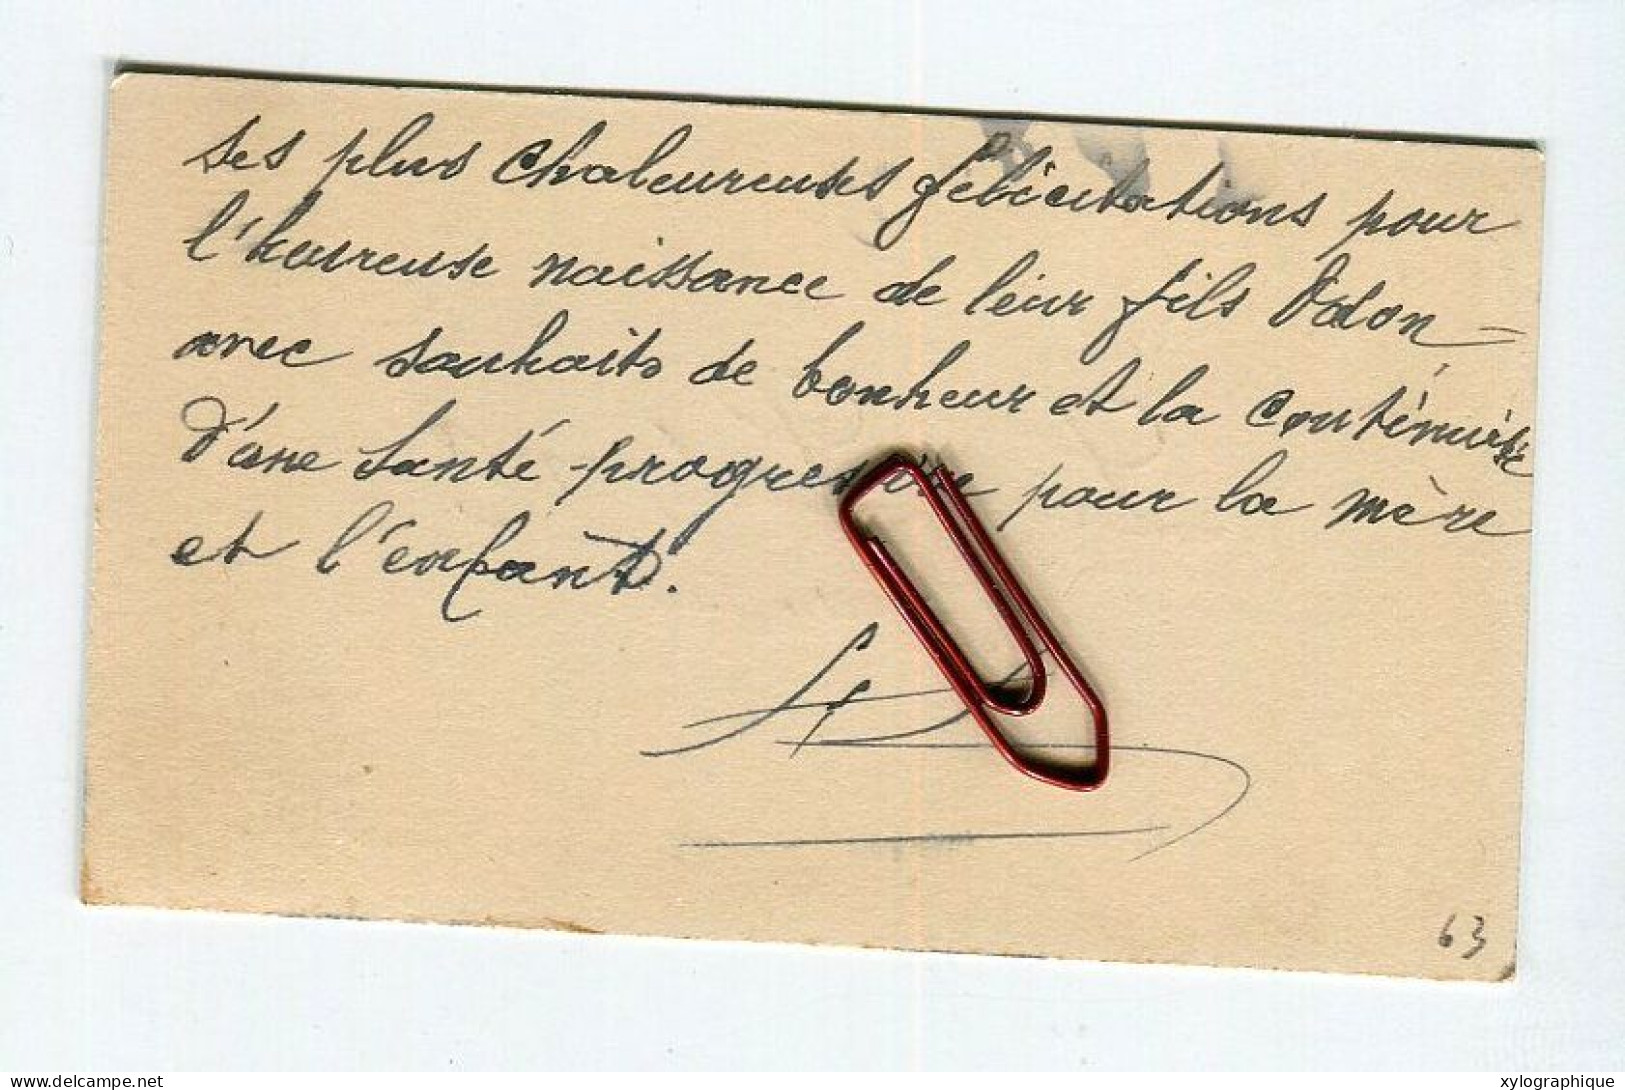 ses plus chaleureuses félicitations pour
l'heureuse naissance de leur fils Odon -
avec souhaits de bonheur et la continuité
d'une santé progressive pour la mère
et l'enfant.
63
xylographique